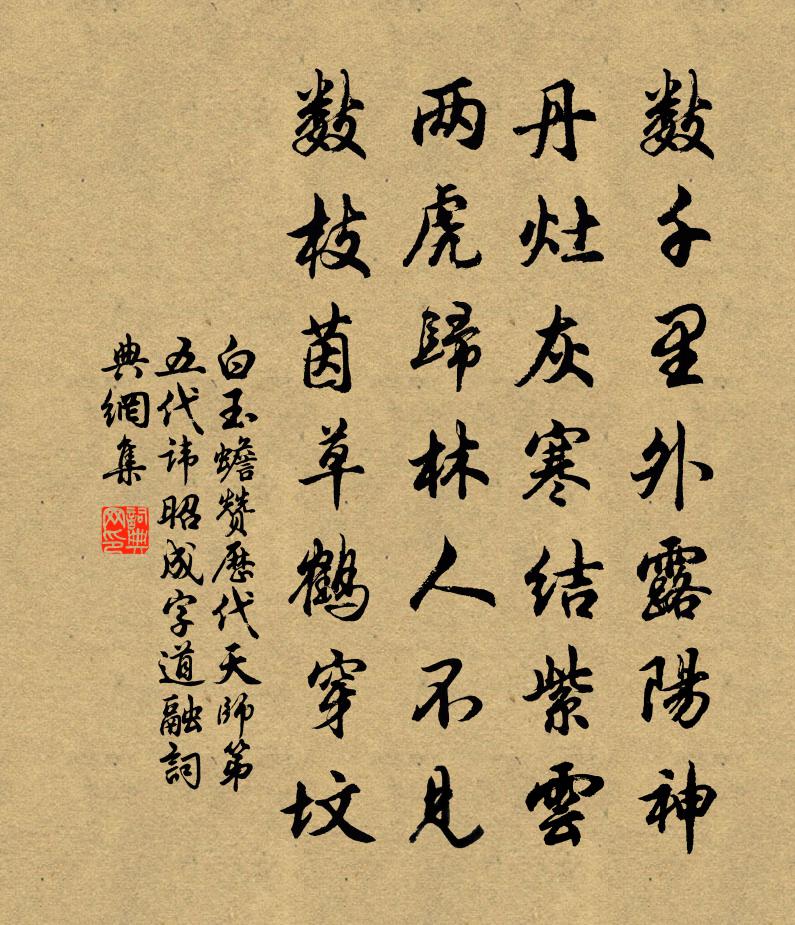 数千里外露陽神
丹灶灰寒結紫雲
两虎歸林人不見
数枝茵草鶴穿坟
白玉蟾贊歷代天師第
五代讳昭成字道融詞
典網集
詞典
网印